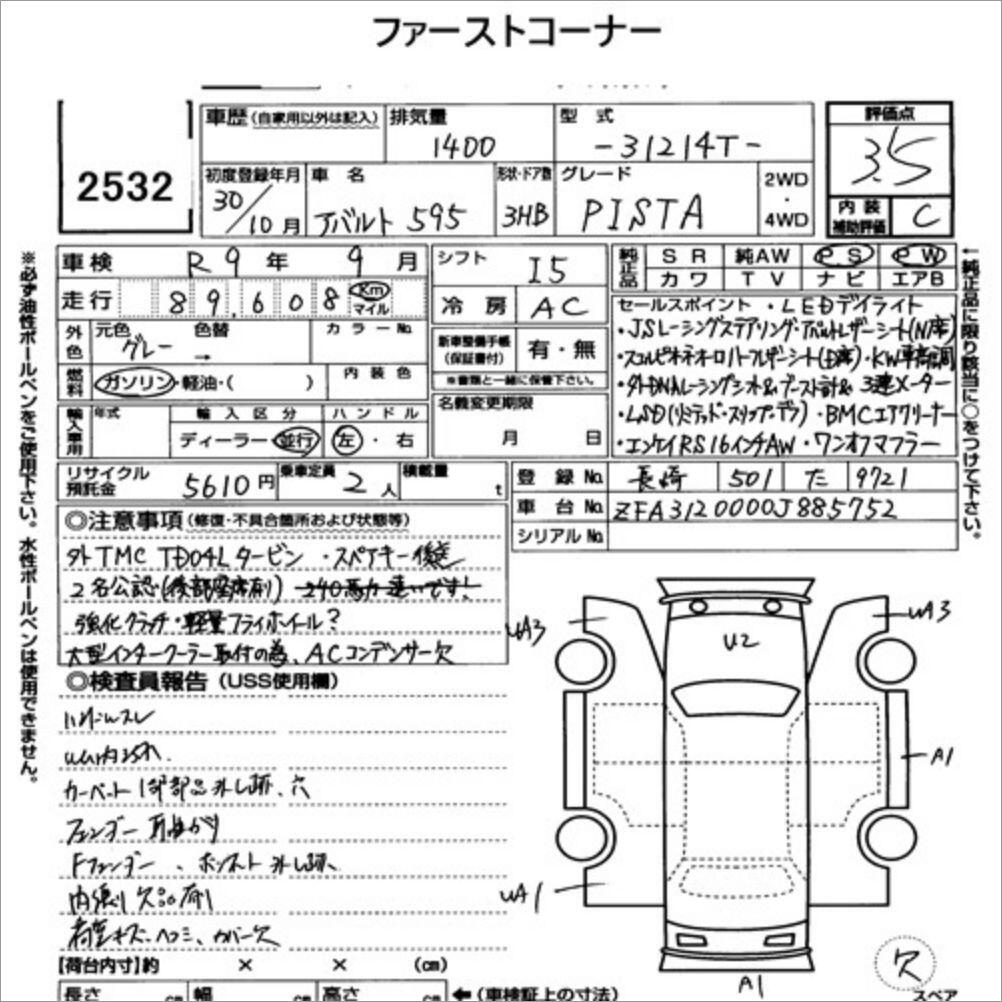 ファーストコーナー
2532
車歴 (自家用以外は記入) 排気量 1400 型式 -31214T-
評価点 3.5
初度登録年月 30/10月 車名 アバルト 595 形状・ドア数 3HB グレード PISTA 2WD・4WD
内装補助評価 C
車検 R9年 9月 シフト I5 純正品 SR 純AW PS PW
走行 89,608 Km マイル 冷房 AC カワ TV ナビ エアB
外色 元色 グレー 色替 → カラーNo. 新車整備手帳(保証書付) 有・無
※書類と一緒に保管下さい。
燃料 ガソリン・軽油・( ) 内装色
名義変更期限 月 日
輸入車用 年式 輸入区分 ディーラー 並行 ハンドル 左・右
セールスポイント ・LEDデイライト
・JSレーシングステアリング・アバルトレザーシート(N席)
・スコルピオネオーロハーフレザーシート(D席)・KW車高調
・外DNAレーシングシフト&ブースト計& 3連メーター
・LSD ・BMCエアクリーナー
・エンケイRS16インチAW・ワンオフマフラー
リサイクル預託金 5610円 乗車定員 2人 積載量 t
登録No. 長崎 501 た 9721
車台No. ZFA3120000J885752
シリアルNo.
◎注意事項 (修復・不具合箇所および状態等)
外TMC TD04Lタービン ・スペアキー後送
2名公認(後部座席有) 240馬力 速いです!
強化クラッチ・軽量フライホイール?
大型インタークーラー取付の為、ACコンデンサー欠
◎検査員報告 (USS使用欄)
ハンドルスレ
内汚れ.
カーペット 1部部品外し跡、穴
フェンダー耳曲がり
Fフェンダー、ボンネット外し跡、
内張り欠品有り
荷室キズ・ヘコミ、カバー欠
UA3
UA3
U2
A1
UA1
A1
欠
スペア
[荷台内寸]約 × × (cm)
長さ cm 幅 cm 高さ cm ←(車検証上の寸法)
※必ず油性ボールペンをご使用下さい。水性ボールペンは使用できません。
←純正品に限り該当に○をつけて下さい。